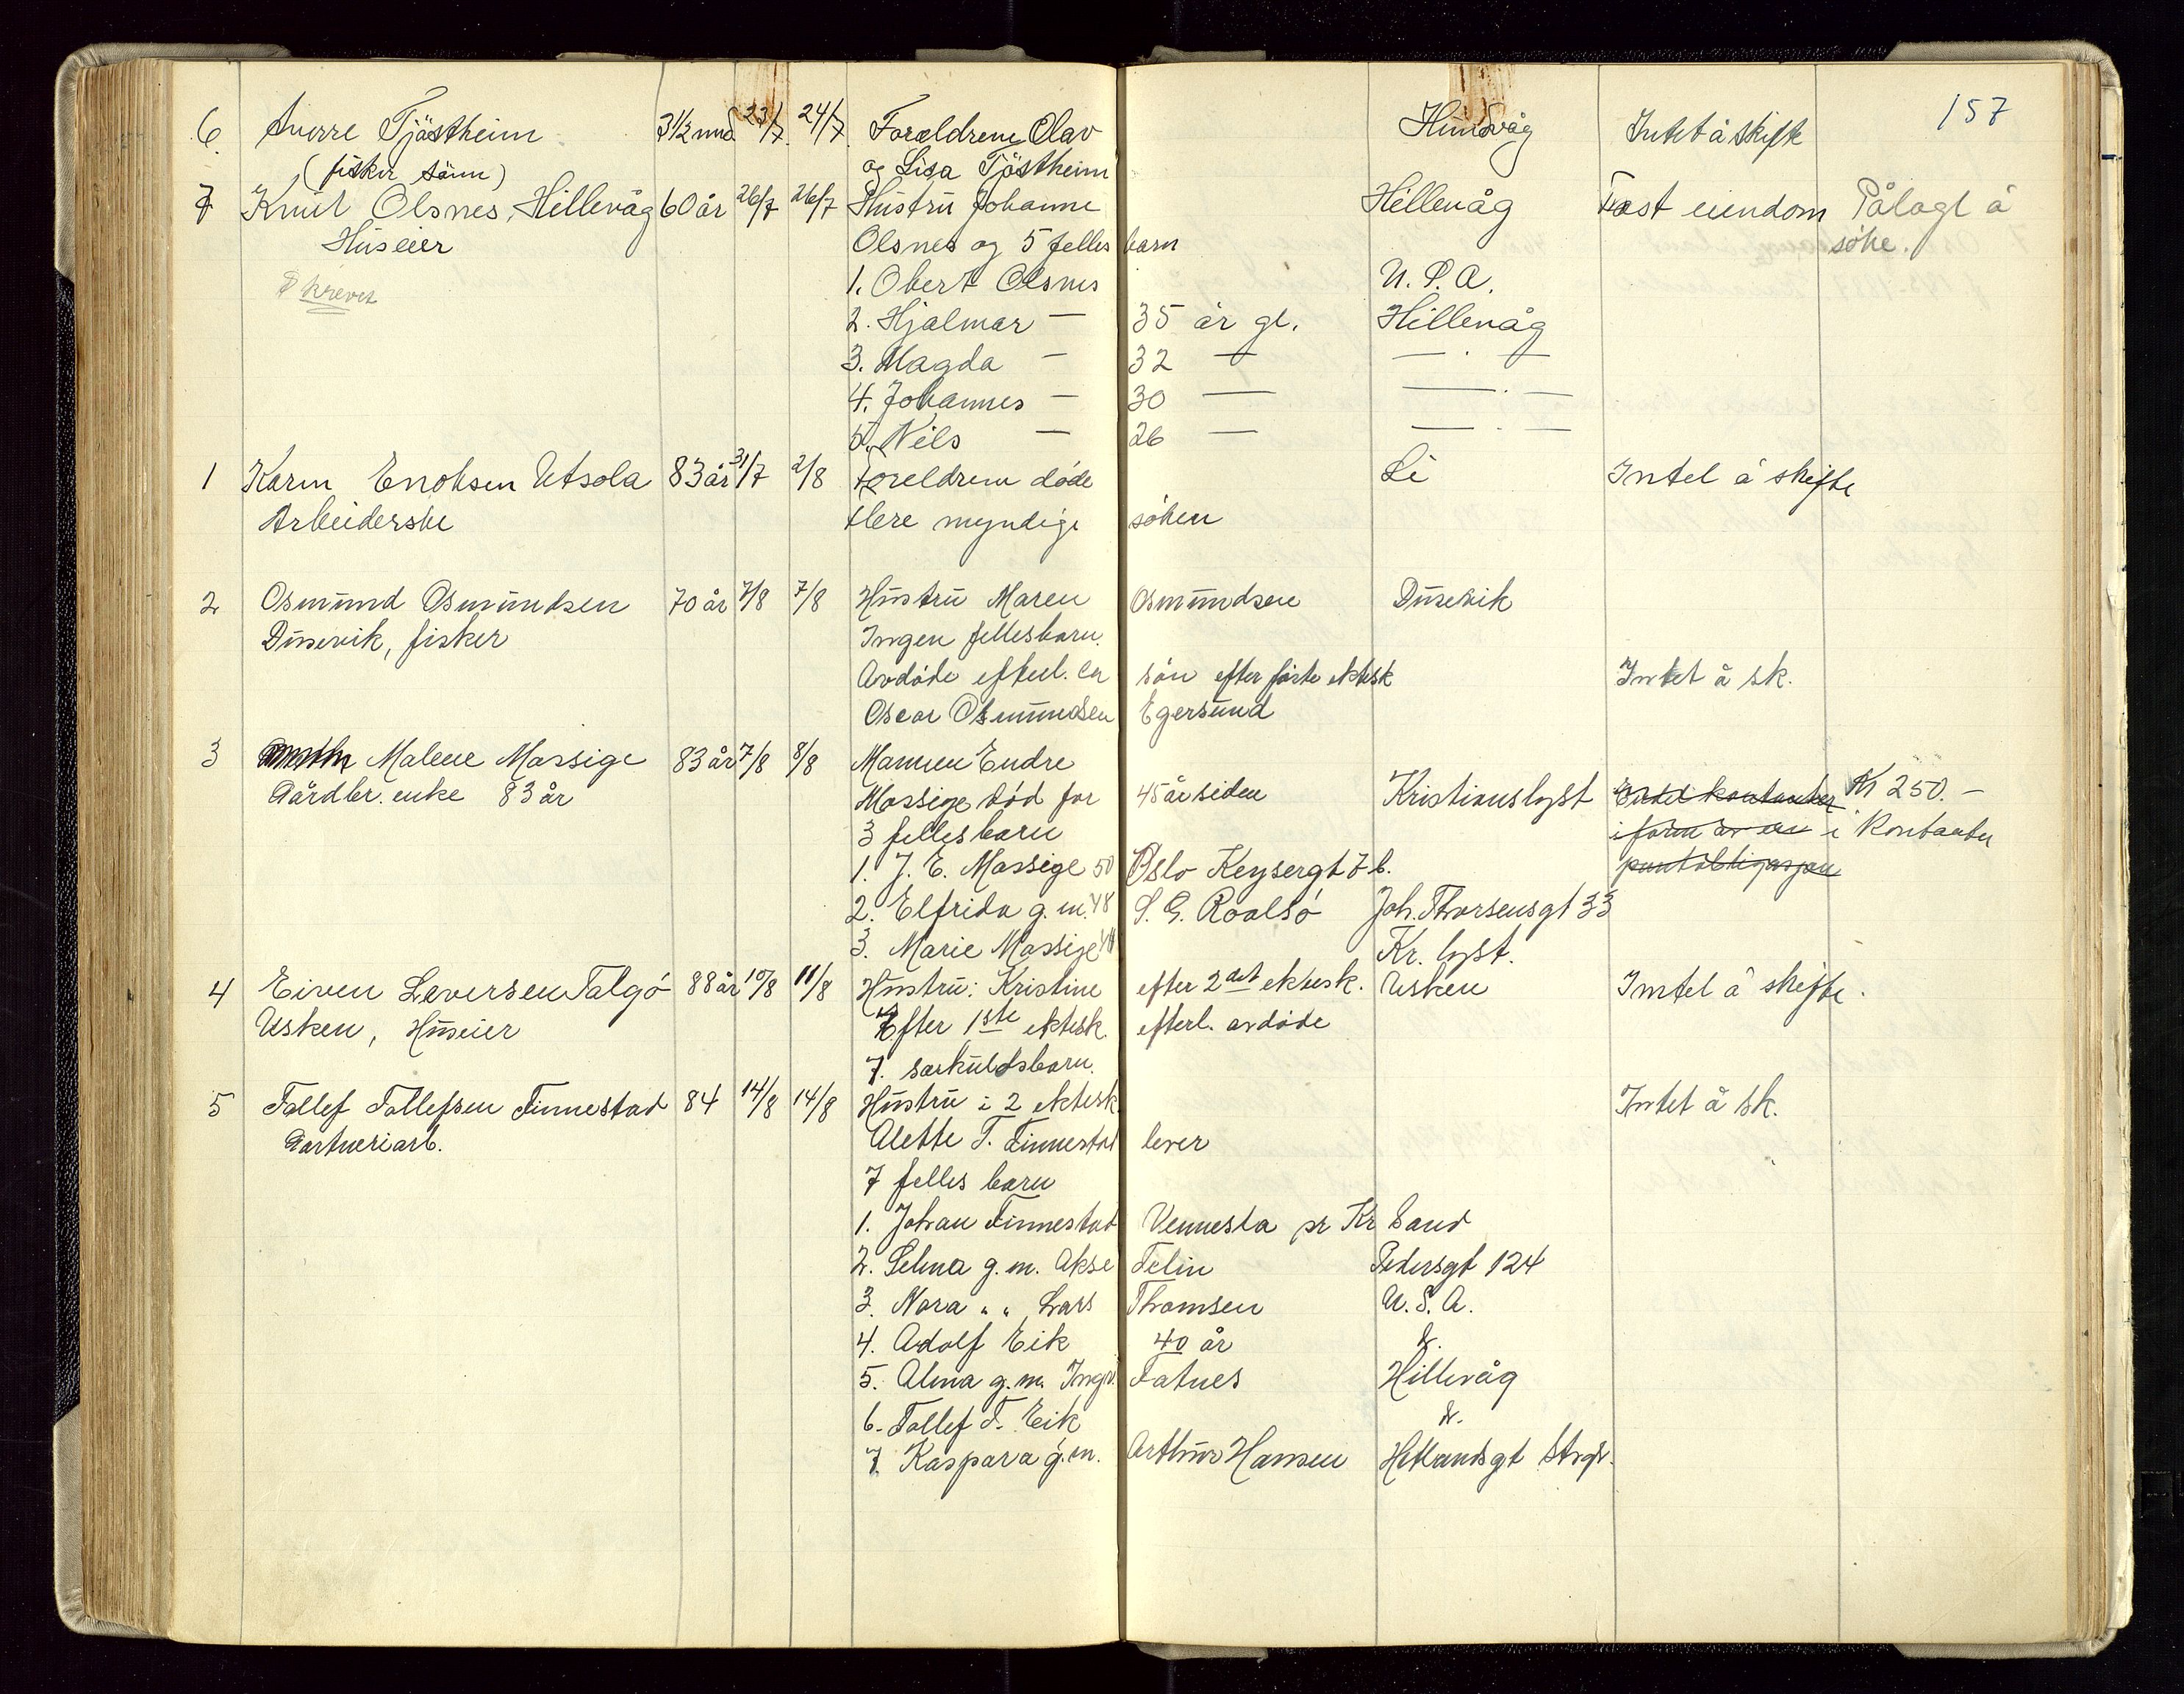 157
6 Sverre Tjøstheim 3½ mnd. 23/7 24/7 Forældrene Olav Hundvåg Intet å skifte
(fisker sönn) og Lisa Tjöstheim
7 Knut Olsnes, Hillevåg 60 år 26/7 26/7 Hustru Johanne Hillevåg Fast eiendom Pålagt å
Huseier Olsnes og 5 felles barn söke.
krevet 1. Obert Olsnes U.S.A.
2. Hjalmar — 35 år gl. Hillevåg
3. Magda — 32 — — . —
4. Johannes — 30 — — . —
5. Nils — 26 — — . —
1 Karen Enoksen Utsola 83 år 31/7 2/8 Foreldrene döde Li Intet å skifte
Arbeiderske flere myndige söken
2 Osmund Osmundsen 70 år 7/8 7/8 Hustru Maren Osmundsen Dusevik
Dusevik, fisker Ingen fellesbarn.
Avdöde efterl. en sön efter förte ektesk Intet å sk.
Oscar Osmundsen Egersund
3 Malene Massige 83 år 7/8 8/8 Mannen Endre
Gårdbr. enke 83 år Massige död for 45 år siden Kristianslyst Endel kontanter Kr 250.-
3 fellesbarn i form av en i Kontanter
1. J. E. Massige 50 Oslo Keysergt 7 b. pantobligasjon
2. Elfrida g.m. 48 S. G. Roalsö Joh. Thorsensgt 33
3. Marie Massige Kr. lyst.
4 Eiven Leversen Talgö 88 år 10/8 11/8 Hustru: Kristine efter 2det ektesk. Usken Intet å skifte.
Usken, Huseier Efter 1ste ektesk. efterl. avdöde
7. særkuldsbarn.
5 Tollef Tollefsen Finnestad 84 14/8 14/8 Hustru i 2 ektesk. Intet å sk.
Gartneriarb. Alette T. Finnestad lever
7 felles barn
1. Johan Finnestad Vennesla pr Kr Sand
2. Selma g.m. Aksel Felin Pedersgt 124
3. Nora " " Lars Thomsen U.S.A.
4. Adolf Eik 40 år d.
5. Alma g.m. Ingv. Fatnes Hillevåg
6. Tollef T. Eik d.
7. Kaspara g.m. Arthur Hansen Hetlandsgt Stvgr.